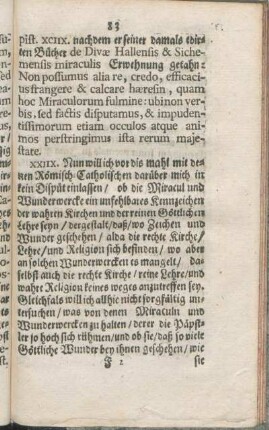 83
pist. XCIIX. nachdem er seiner damals edir-
ten Bücher de Divæ Hallensis & Siche-
mensis miraculis Erwehnung gethan:
Non possumus alia re, credo, efficaci-
us frangere & calcare hæresin, quam
hoc Miraculorum fulmine: ubi non ver-
bis, sed factis disputamus, & impuden-
tissimorum etiam occulos atque ani-
mos perstringimus ista rerum maje-
stare.
XXIIX. Nun will ich vor diß mahl mit de-
nen Römisch-Catholischen darüber mich in
kein Disput einlassen / ob die Miracul und
Wunderwercke ein unfehlbares Kennzeichen
der wahren Kirchen und der reinen Göttlichen
Lehre seyn / dergestalt / daß / wo Zeichen und
Wunder geschehen / alda die rechte Kirche /
Lehre / und Religion sich befinden / wo aber
an solchen Wunderwercken es mangelt / da-
selbst auch die rechte Kirche / reine Lehre / und
wahre Religion keines weges anzutreffen sey.
Gleichfals will ich allhie nicht sorgfältig un-
tersuchen / was von denen Miraculn und
Wunderwercken zu halten / derer die Päpst-
ler so hoch sich rühmen / und ob sie / daß so viele
Göttliche Wunder bey ihnen geschehen / wie
F 2 sie